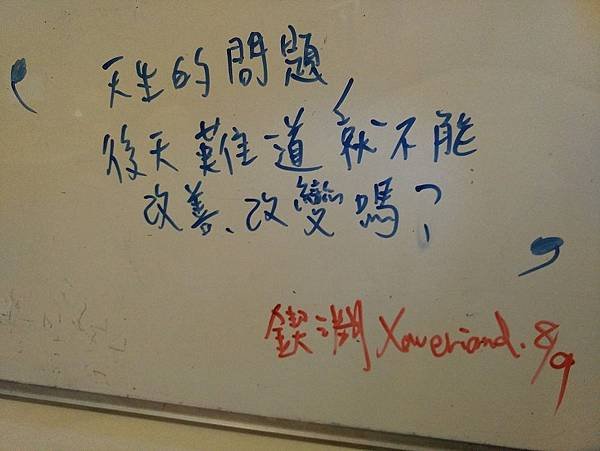 天生的問題，
後天難道就不能
改善、改變嗎？
8/9